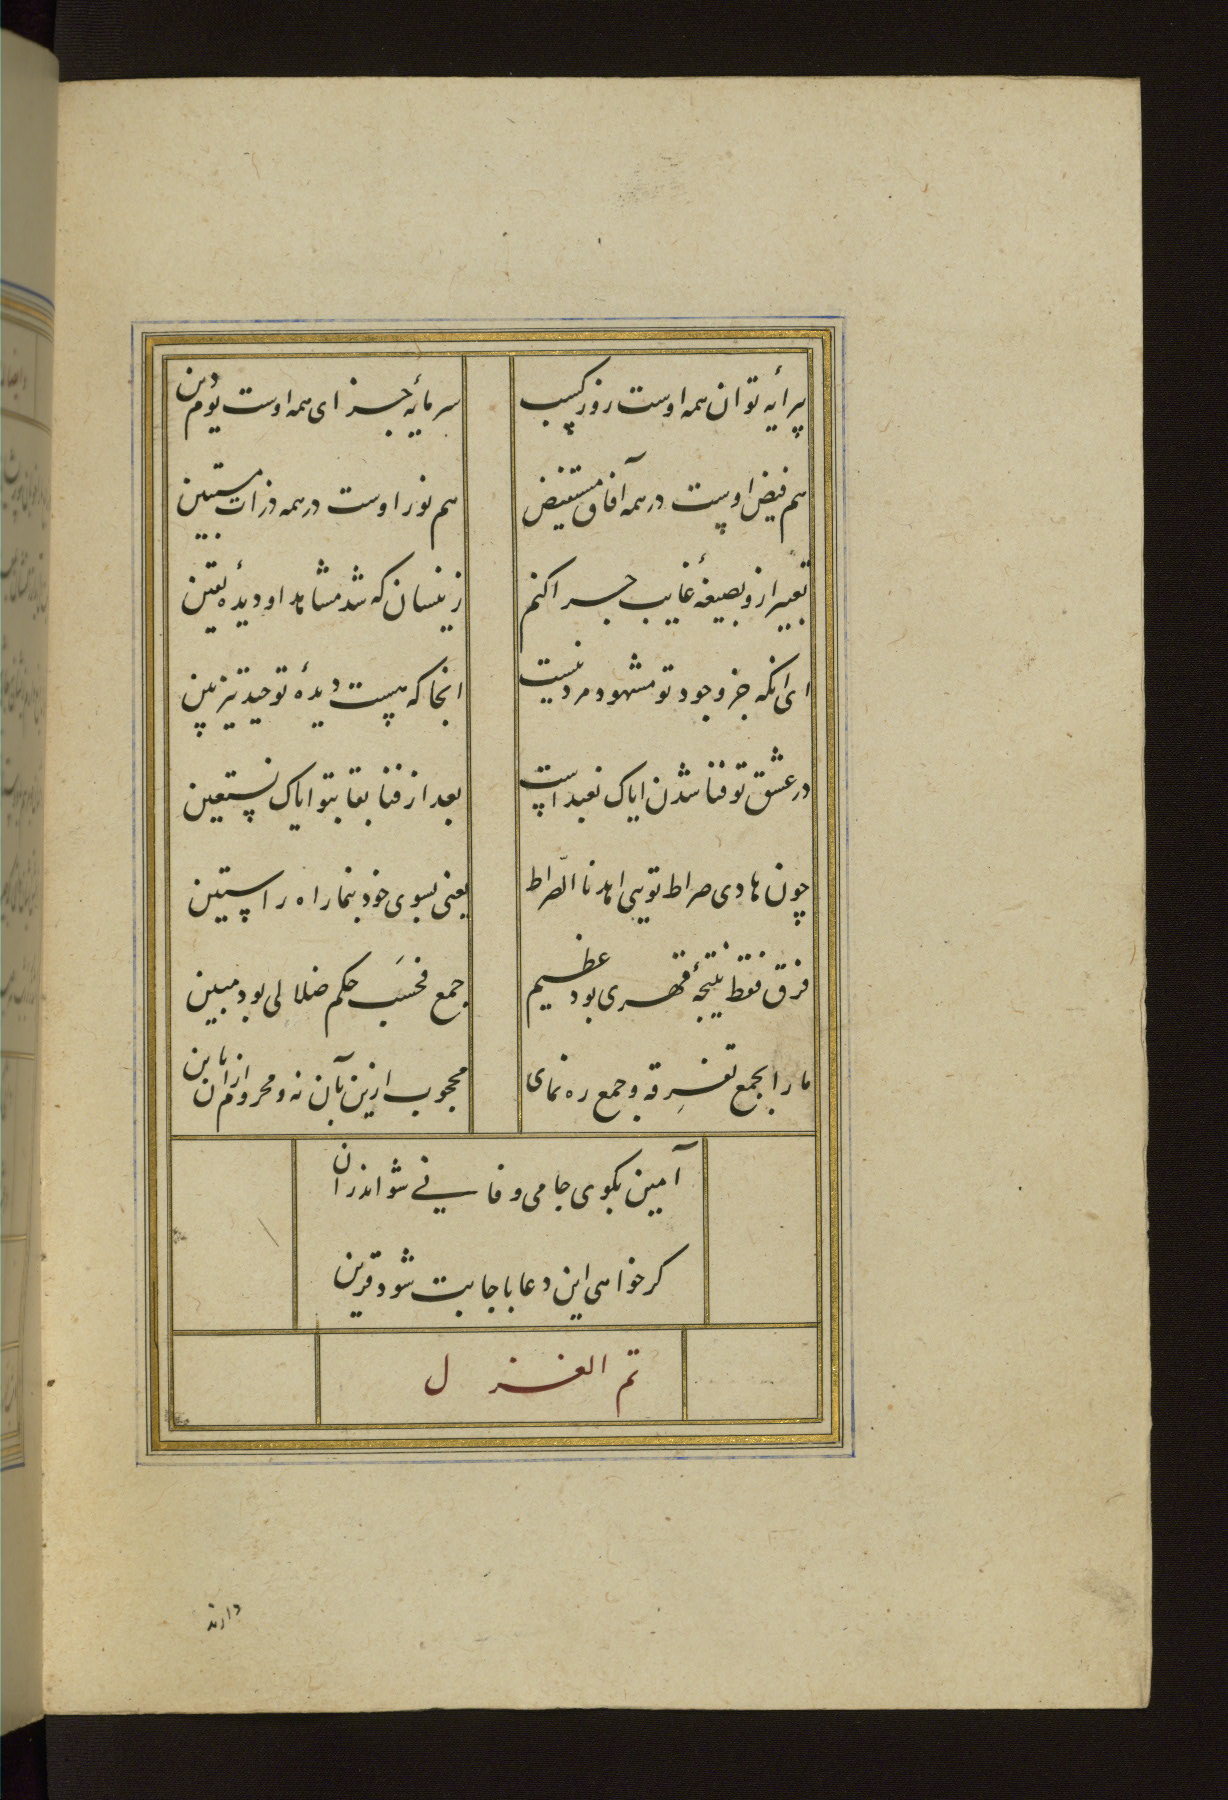 پیرایهٔ توان همه اوست روز کسب
سرمایهٔ جزای همه اوست یوم دین
هم فیض اوست در همه آفاق مستفیض
هم نور اوست در همه ذرات مستبین
تعبیر ازو بصیغهٔ غایب چرا کنم
زینسان که شد مشاهد او دیدهٔ یقین
ای انکه جز وجود تو مشهود مرد نیست
انجا که هست دیدهٔ توحید تیزبین
در عشق تو فنا شدن ایاک نعبد است
بعد از فنا بقا بتو ایاک نستعین
چون هادی صراط تویی اهدنا الصّراط
یعنی بسوی خود بنما راه راستین
فرق فقط نتیجهٔ قهری بود عظیم
جمع فحسَب حکم ضلالی بود مبین
ما را بجمع تفرِقه و جمع ره نمای
محجوب ازین بآن نه و محروم ازان باین
آمین بکوی جامی و فانی شو اندران
کر خواهی این دعا باجابت شود قرین
تم الغزل
دارند